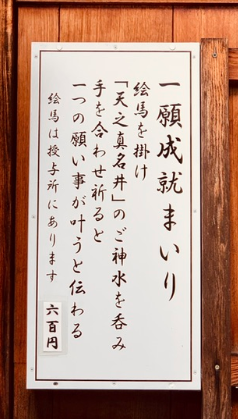 一願成就まいり
絵馬を掛け
「天之真名井」のご神水を呑み
手を合わせ祈ると
一つの願い事が叶うと伝わる
絵馬は授与所にあります
六百円